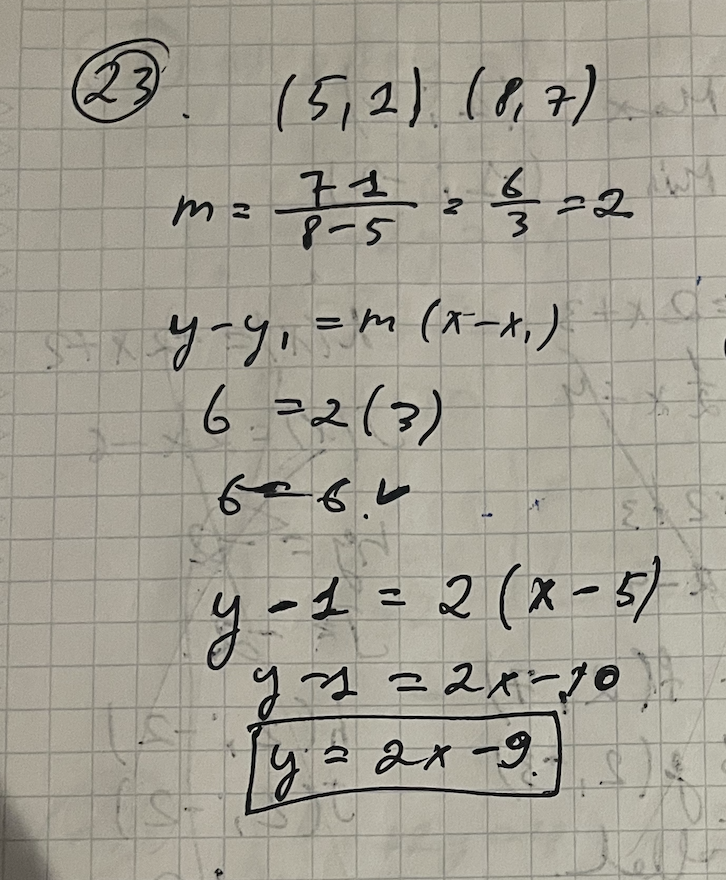 23. (5,1) (8,7)
m = 7-1/8-5 = 6/3 = 2
y-y₁ = m (x-x₁)
6 = 2 (3)
6 = 6. ✓
y - 1 = 2 (x - 5)
y - 1 = 2x - 10
y = 2x - 9.